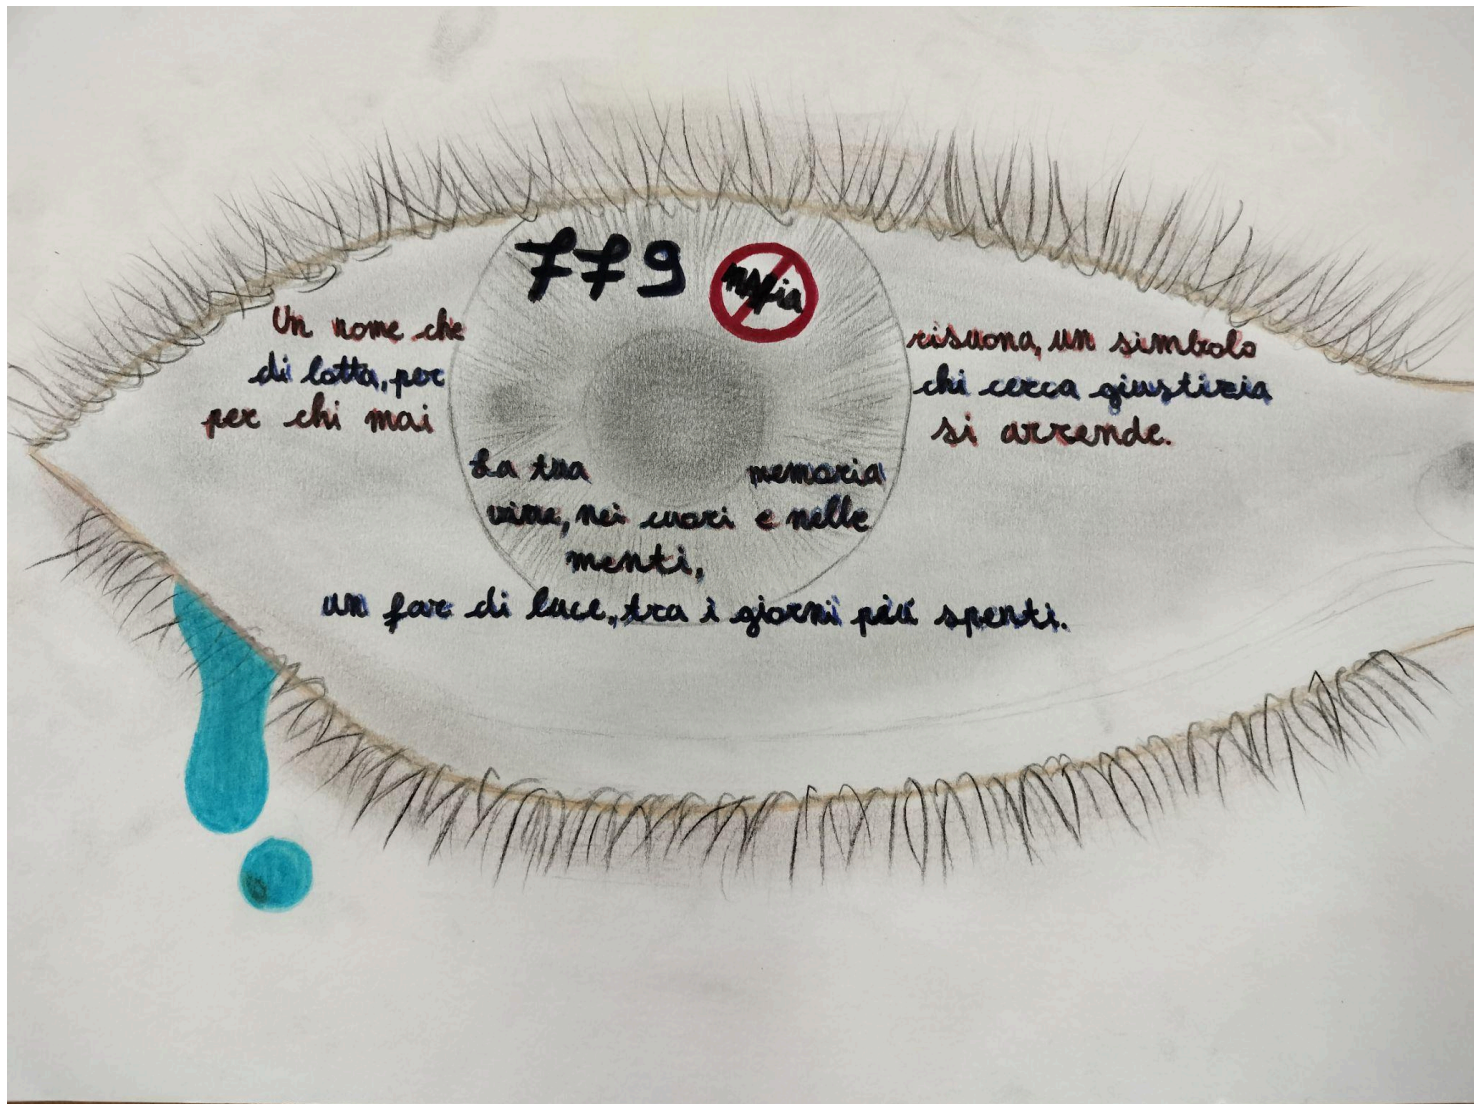 779 mafia
Un nome che risuona, un simbolo
di lotta, per chi cerca giustizia
per chi mai si arrende.
La tua memoria
vive, nei cuori e nelle
menti,
un far di luce, tra i giorni più spenti.